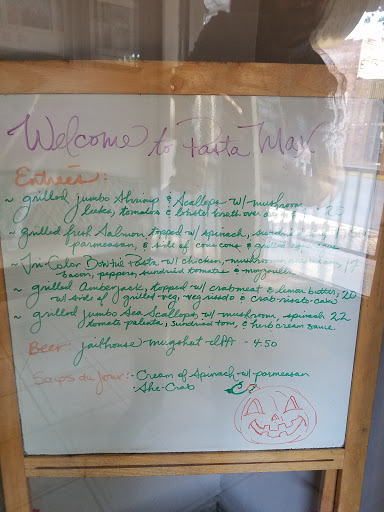 Welcome to Pasta Max
Entrées:
~ grilled jumbo Shrimp & Scallops w/ mushroom
leeks, tomatoes & lobster broth over
~ grilled fresh Salmon, topped w/ spinach, sundried
parmesean, & side of cous cous & grilled veg
~ Tri-Color Bowtie Pasta w/ chicken, mushroom 17
bacon, peppers, sundried tomatoes & mozzarella
~ grilled Amberjack, topped w/ crabmeat & lemon butter, 20
w/ side of grilled veg, veg risoto & crab risoto cake
~ grilled jumbo Sea Scallops w/ mushroom, spinach 22
tomato polenta, sundried tom, & herb cream sauce
Beer: jailhouse mugshot IPA - 4.50
Soups du Jour: - Cream of Spinach w/ parmesean
- She-Crab